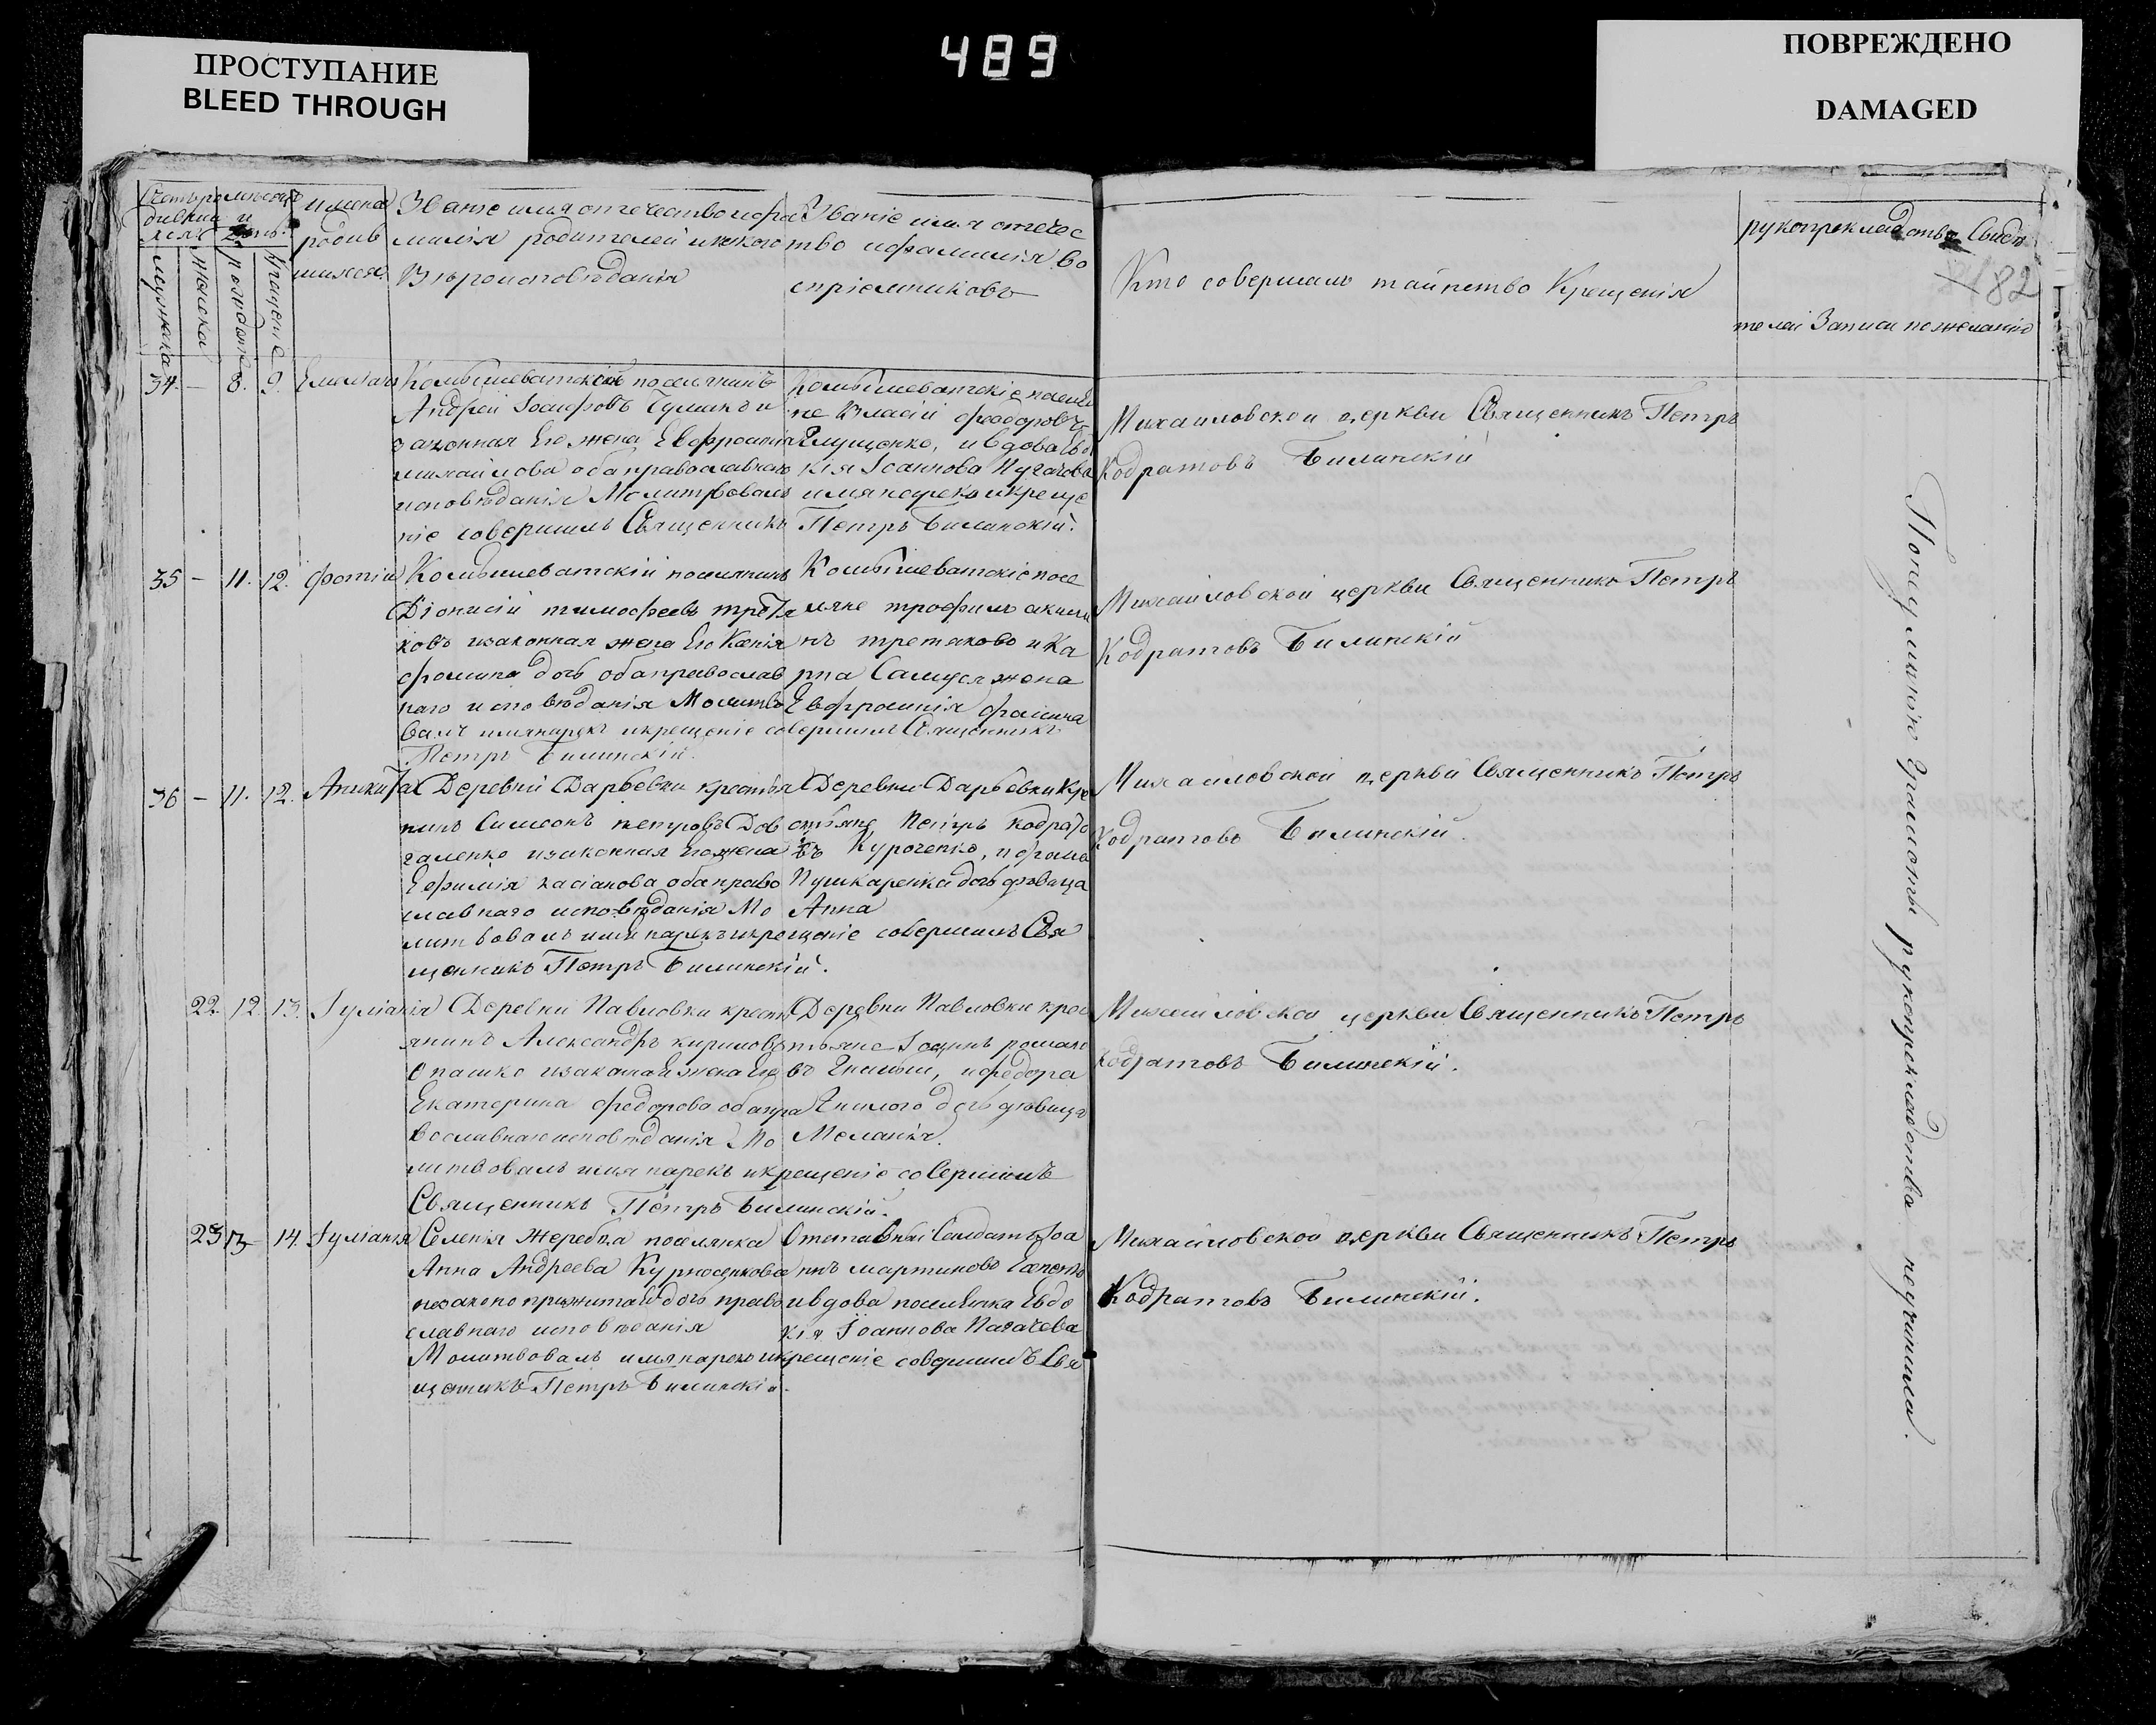 489
ПРОСТУПАНИЕ
BLEED THROUGH
ПОВРЕЖДЕНО
DAMAGED
имена
родив
шихся
Званіе имя отечество и фа
милія родителей и какого
Вѣроисповѣданія
Званіе имя отечес
тво и фамилія во
спріемниковъ
Кто совершалъ таинство Крещенія
рукоприкладство Свидѣ
телей Записи по желанію
482
мужеска
женска
рожденія
крещеніе
34. – 8. 9.
Комышеватскій поселянинъ
Андрей Іосифовъ
законная Его жена Евфросинія
михайлова оба православнаго
исповѣданія Молитвовалъ имя нарекъ и креще
ніе совершилъ Священникъ Петръ Билинскій.
Комышеватскіе поселя
не Власій феодоровъ
Глущенко, и вдова Евдо
кія Іоаннова Пугачева
Михаиловской церкви Священникъ Петръ
Кодратовъ Билинскій
35 – 11. 12. фотій
Комышеватскій поселянинъ
Діонисій тимофеевъ третя
ковъ и законная жена Его Ксенія
фомина дочь оба православ
наго исповѣданія Молитво
валъ имя нарекъ и крещеніе совершилъ Священникъ
Петръ Билинскій.
Комышеватскіе посе
ляне трофимъ акимо
въ третяковъ и Ка
рпа Самуся жена
Евфросинія фомина
Михаиловской церкви Священникъ Петръ
Кодратовъ Билинскій
36 – 11. 12. Аникита
Деревни Дарьевки крестья
нинъ Симеонъ петровъ Дов
галенко и законная его жена
Ефимія касіанова оба право
славнаго исповѣданія Мо
литвовалъ имя нарекъ и крещеніе совершилъ Свя
щенникъ Петръ Билинскій.
Деревни Дарьевки Кре
стьяне Петръ кодрато
въ Куроченко, и фома
Пушкаренка дочь дѣвица
Анна
Михаиловской церкви Священникъ Петръ
Кодратовъ Билинскій.
22. 12. 13. Іуліанія
Деревни Павловки крест
янинъ Александръ кириловъ
Опашко и законная жена Его
Екатерина федорова оба пра
вославнаго исповѣданія Мо
литвовалъ имя нарекъ и крещеніе совершилъ
Священникъ Петръ Билинскій.
Деревни Павловки крес
тьяне Іоаннъ романо
въ Гнилый, и федора
Гнилого дочь дѣвица
Меланія.
Михаиловской церкви Священникъ Петръ
Кодратовъ Билинскій.
23 13 – 14. Іуліанія
Селенія Жеребца поселянка
Анна Андреева Курносенкова
незаконо прижитая дочь право
славнаго исповѣданія
Молитвовалъ имя нарекъ и крещеніе совершилъ Свя
щенникъ Петръ Билинскій.
Отставный Солдатъ Іоа
ннъ мартиновъ
и вдова поселянка Евдо
кія Іоаннова Пагачева
Михаиловской церкви Священникъ Петръ
Кодратовъ Билинскій.
По неумѣнію Грамоты рукоприкладства неучинила.